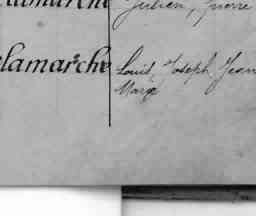 lamarche Julien, Pierre
lamarche Louis, Joseph, Jean
Marie